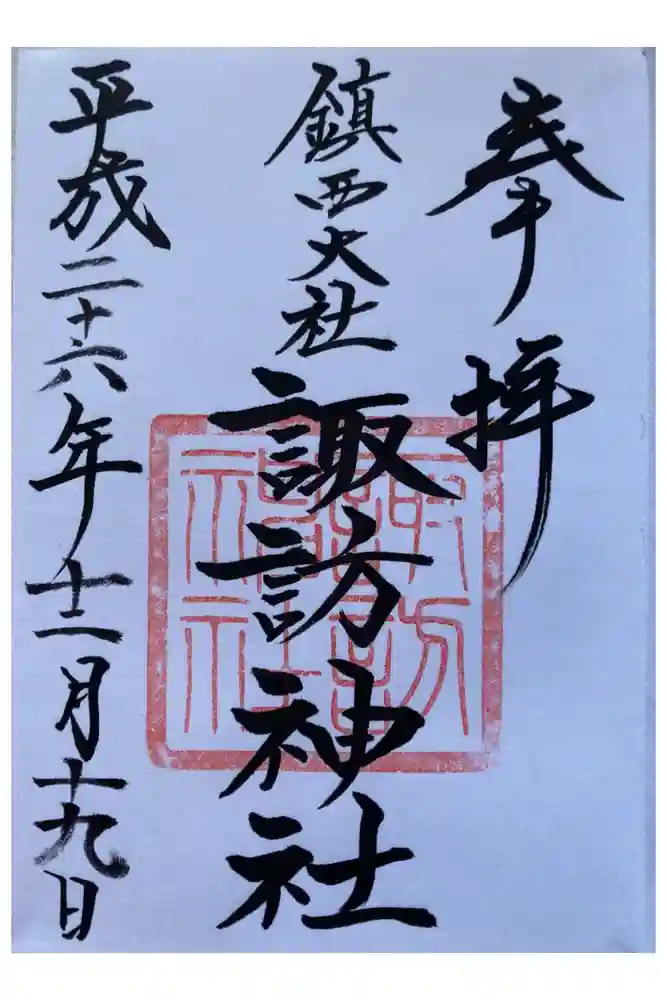 奉拝
鎮西大社
諏訪神社
諏訪神社
平成二十六年十二月十九日